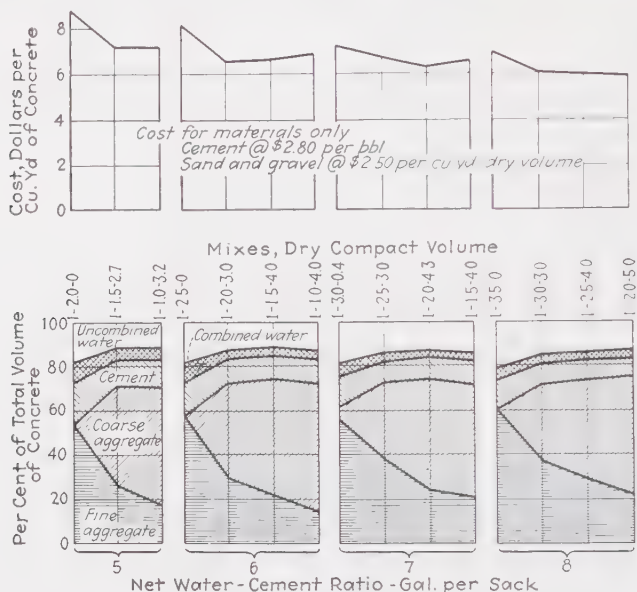 Cost, Dollars per
Cu. Yd of Concrete
8
6
4
2
0
Cost for materials only
Cement @ $2.80 per bbl
Sand and gravel @ $2 50 per cu yd dry volume
Mixes, Dry Compact Volume
1-2.0-0
1-1.5-2.7
1-1.0-3.2
1-2 5-0
1-20-3.0
1-1.5-4.0
1-1 0-4.0
1-3.0-0.4
1-25-30
1-20-4 3
1-1 5-4 0
1-3 5 0
1-30-30
1-25-40
1-20-5 0
Per Cent of Total Volume
of Concrete
100
80
60
40
20
0
Uncombined
water
Combined water
Cement
Coarse
aggregate
Fine
aggregate
5
6
7
8
Net Water-Cement Ratio-Gal. per Sack